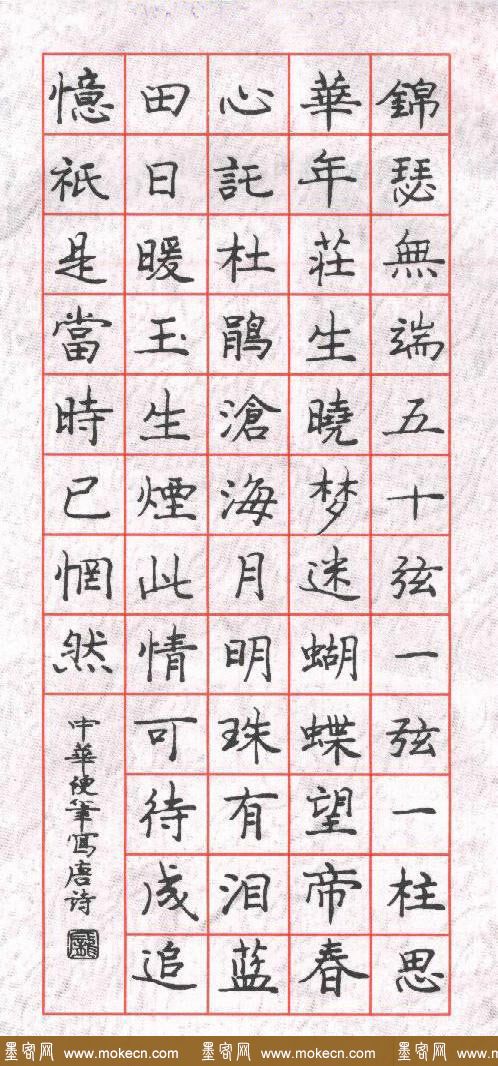 錦瑟無端五十弦一弦一柱思
華年莊生曉梦迷蝴蝶望帝春
心託杜鵑滄海月明珠有泪蓝
田日暖玉生煙此情可待成追
憶祇是當時已惘然
中華硬筆寫唐诗
墨客网 www.mokecn.com 墨客网 www.mokecn.com 墨客网 www.m